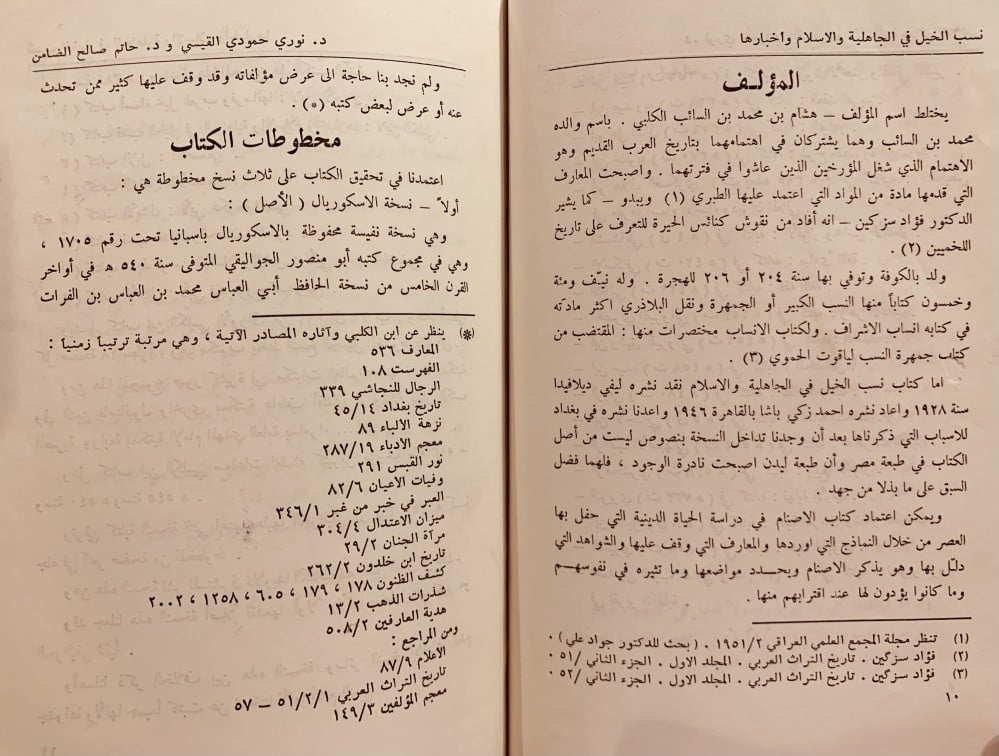 نسب الخيل في الجاهلية والاسلام واخبارها
المؤلف
يختلط اسم المؤلف – هشام بن محمد بن السائب الكلبي . باسم والده
محمد بن السائب وهما يشتركان في اهتمامهما بتاريخ العرب القديم وهو
الاهتمام الذي شغل المؤرخين الذين عاشوا في فترتهما . واصبحت المعارف
التي قدمها مادة من المواد التي اعتمد عليها الطبري (١) ويبدو – كما يشير
الدكتور فؤاد سزكين – انه أفاد من نقوش كنائس الحيرة للتعرف على تاريخ
اللخميين (٢) .
ولد بالكوفة وتوفي بها سنة ٢٠٤ أو ٢٠٦ للهجرة . وله نيّف ومئة
وخمسون كتاباً منها النسب الكبير أو الجمهرة ونقل البلاذري اكثر مادته
في كتابه انساب الاشراف . ولكتاب الانساب مختصرات منها : المقتضب من
كتاب جمهرة النسب لياقوت الحموي (٣) .
اما كتاب نسب الخيل في الجاهلية والاسلام نقد نشره ليفي ديلافيدا
سنة ١٩٢٨ واعاد نشره احمد زكي باشا بالقاهرة ١٩٤٦ واعدنا نشره في بغداد
للاسباب التي ذكرناها بعد أن وجدنا تداخل النسخة بنصوص ليست من أصل
الكتاب في طبعة مصر وأن طبعة ليدن اصبحت نادرة الوجود ، فلهما فضل
السبق على ما بذلا من جهد .
ويمكن اعتماد كتاب الاصنام في دراسة الحياة الدينية التي حفل بها
العصر من خلال النماذج التي اوردها والمعارف التي وقف عليها والشواهد التي
دلّل بها وهو يذكر الاصنام ويحدد مواضعها وما تثيره في نفوسهم
وما كانوا يؤدون لها عند اقترابهم منها .
(١) تنظر مجلة المجمع العلمي العراقي ١٩٥١/٢ . ( بحث للدكتور جواد علي ) ٠
(٢) فؤاد سزگين . تاريخ التراث العربي . المجلد الاول . الجزء الثاني /٥١ ٠
(٣) فؤاد سزگين . تاريخ التراث العربي . المجلد الاول . الجزء الثاني /٥٢ ٠
١٠
د. نوري حمودي القيسي و د. حاتم صالح الضامن
ولم نجد بنا حاجة الى عرض مؤلفاته وقد وقف عليها كثير ممن تحدث
عنه أو عرض لبعض كتبه (*) .
مخطوطات الكتاب
اعتمدنا في تحقيق الكتاب على ثلاث نسخ مخطوطة هي :
أولاً – نسخة الاسكوريال ( الأصل ) :
وهي نسخة نفيسة محفوظة بالاسكوريال باسبانيا تحت رقم ١٧٠٥ ،
وهي في مجموع كتبه أبو منصور الجواليقي المتوفى سنة ٥٤٠ هـ في أواخر
القرن الخامس من نسخة الحافظ أبي العباس محمد بن العباس بن الفرات
(*) ينظر عن ابن الكلبي وآثاره المصادر الآتية ، وهي مرتبة ترتيباً زمنياً :
المعارف ٥٣٦
الفهرست ١٠٨
الرجال للنجاشي ٣٣٩
تاريخ بغداد ٤٥/١٤
نزهة الألباء ٨٩
معجم الادباء ٢٨٧/١٩
نور القبس ٢٩١
وفيات الأعيان ٨٢/٦
العبر في خبر من غبر ٣٤٦/١
ميزان الاعتدال ٣٠٤/٤
مرآة الجنان ٢٩/٢
تاريخ ابن خلدون ٢٦٢/٢
كشف الظنون ١٧٨ ، ١٧٩ ، ٦٠٥ ، ١٢٥٨ ، ٢٠٠٢
شذرات الذهب ١٣/٢
هدية العارفين ٥٠٨/٢
ومن المراجع :
الأعلام ٨٧/٩
تاريخ التراث العربي ٥١/٢/١ – ٥٧
معجم المؤلفين ١٤٩/٣